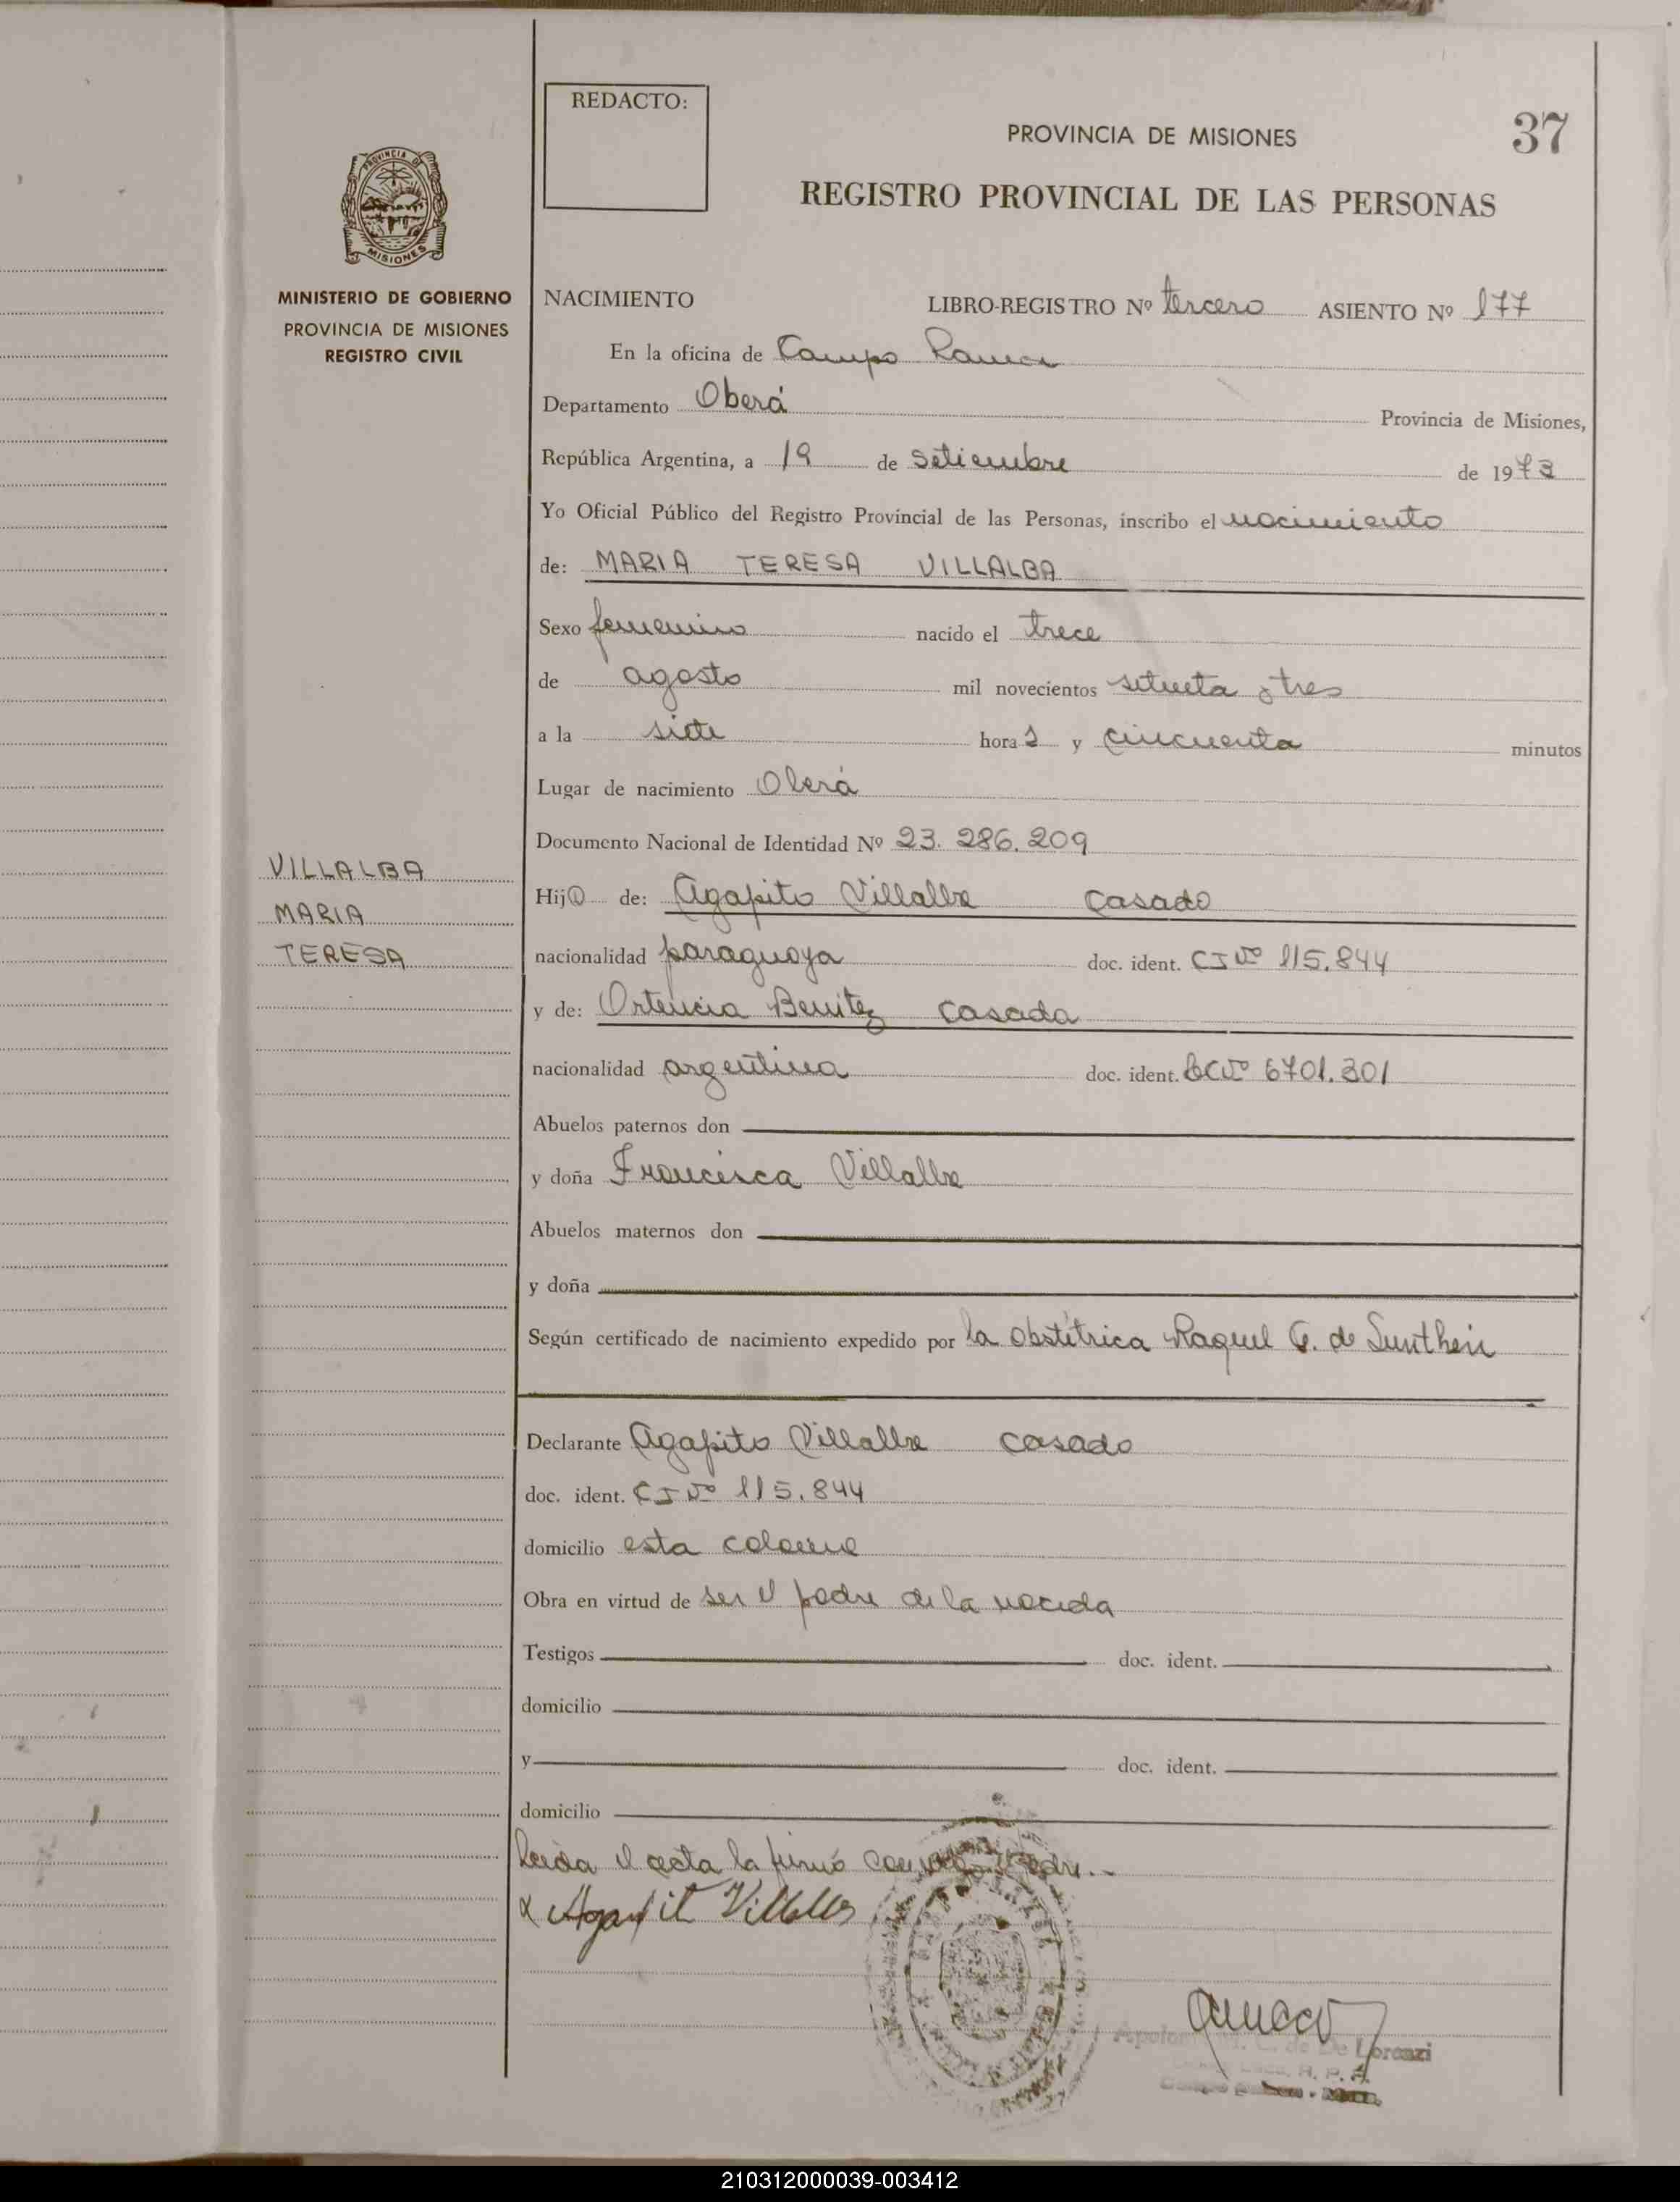 REDACTO:
37
PROVINCIA DE MISIONES
REGISTRO PROVINCIAL DE LAS PERSONAS
PROVINCIA DE
MISIONES
MINISTERIO DE GOBIERNO
PROVINCIA DE MISIONES
REGISTRO CIVIL
NACIMIENTO LIBRO-REGISTRO Nº tercero ASIENTO Nº 177
En la oficina de Campo Ramon
Departamento Oberá Provincia de Misiones,
República Argentina, a 19 de setiembre de 1973
Yo Oficial Público del Registro Provincial de las Personas, inscribo el nacimiento
de: MARIA TERESA VILLALBA
Sexo femenino nacido el trece
de agosto mil novecientos setenta y tres
a la siete horas y cincuenta minutos
Lugar de nacimiento Oberá
Documento Nacional de Identidad Nº 23.286.209
VILLALBA
MARIA
TERESA
Hija de: Agapito Villalba casado
nacionalidad paraguaya doc. ident. CI Nº 115.844
y de: Ortencia Benitez casada
nacionalidad argentina doc. ident. LC Nº 6701.301
Abuelos paternos don
y doña Francisca Villalba
Abuelos maternos don
y doña
Según certificado de nacimiento expedido por la obstétrica Raquel G. de Sunthein
Declarante Agapito Villalba casado
doc. ident. CI Nº 115.844
domicilio esta colonia
Obra en virtud de ser el padre de la nacida
Testigos doc. ident.
domicilio
y doc. ident.
domicilio
Leida el acta la firmó conmigo el padre.-
x Agapit Villalba
de De Lorenzi
210312000039-003412